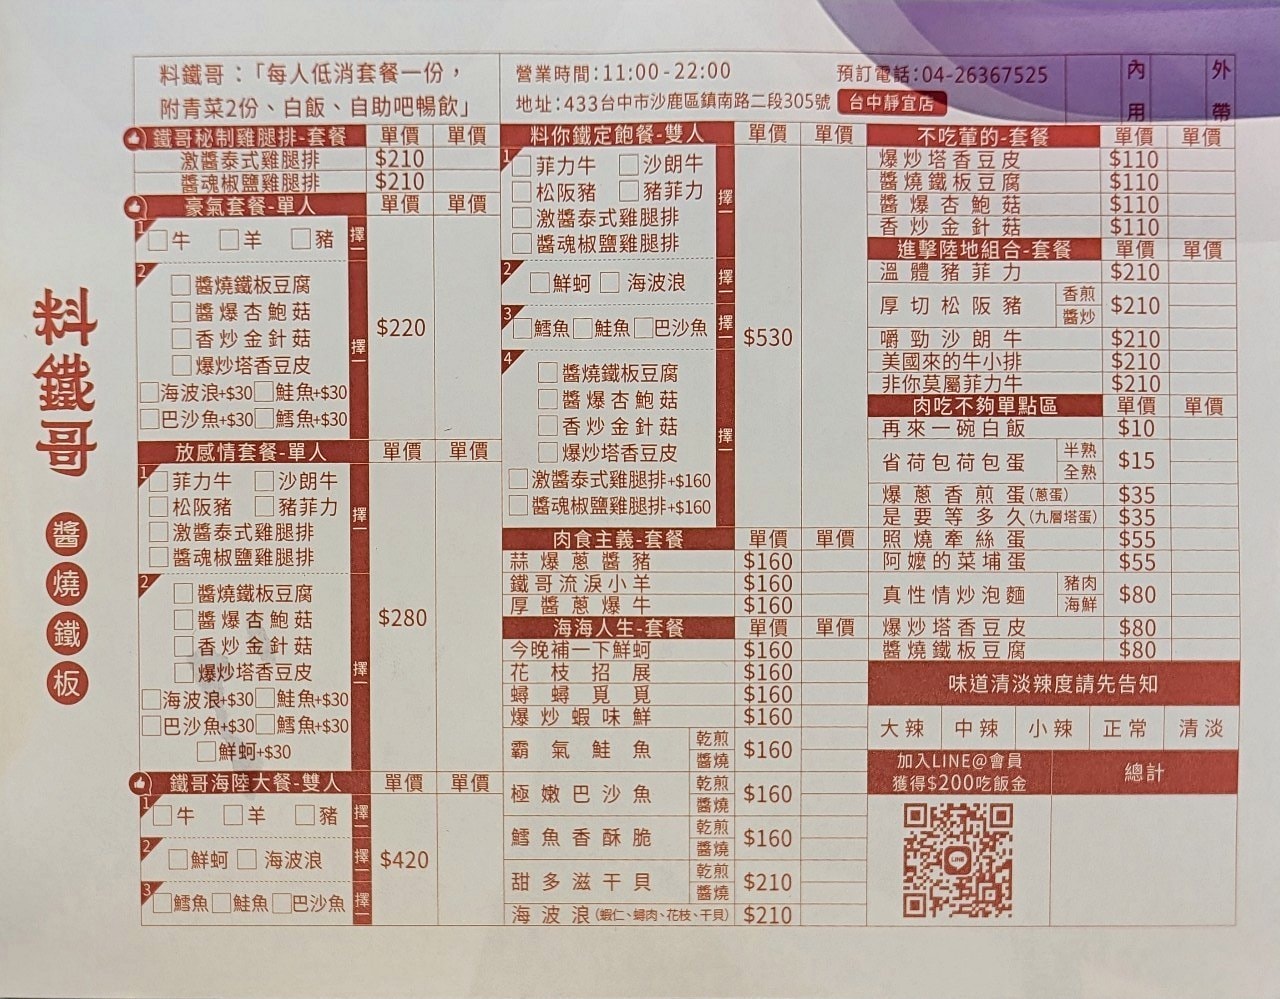 料鐵哥
醬燒鐵板
料鐵哥：「每人低消套餐一份，
附青菜2份、白飯、自助吧暢飲」
營業時間：11:00 - 22:00
預訂電話：04-26367525
地址：433台中市沙鹿區鎮南路二段305號 台中靜宜店
內用
外帶
鐵哥秘制雞腿排-套餐 單價 單價
激醬泰式雞腿排 $210
醬魂椒鹽雞腿排 $210
豪氣套餐-單人 單價 單價
1 牛 羊 豬 擇一
2 醬燒鐵板豆腐
醬爆杏鮑菇
香炒金針菇
爆炒塔香豆皮
海波浪+$30 鮭魚+$30
巴沙魚+$30 鱈魚+$30
擇一
$220
放感情套餐-單人 單價 單價
1 菲力牛 沙朗牛
松阪豬 豬菲力
激醬泰式雞腿排
醬魂椒鹽雞腿排
擇一
2 醬燒鐵板豆腐
醬爆杏鮑菇
香炒金針菇
爆炒塔香豆皮
海波浪+$30 鮭魚+$30
巴沙魚+$30 鱈魚+$30
鮮蚵+$30
擇一
$280
鐵哥海陸大餐-雙人 單價 單價
1 牛 羊 豬 擇一
2 鮮蚵 海波浪 擇一
3 鱈魚 鮭魚 巴沙魚 擇一
$420
料你鐵定飽餐-雙人 單價 單價
1 菲力牛 沙朗牛
松阪豬 豬菲力
激醬泰式雞腿排
醬魂椒鹽雞腿排
擇一
2 鮮蚵 海波浪 擇一
3 鱈魚 鮭魚 巴沙魚 擇一
4 醬燒鐵板豆腐
醬爆杏鮑菇
香炒金針菇
爆炒塔香豆皮
激醬泰式雞腿排+$160
醬魂椒鹽雞腿排+$160
擇一
$530
肉食主義-套餐 單價 單價
蒜爆蔥醬豬 $160
鐵哥流淚小羊 $160
厚醬蔥爆牛 $160
海海人生-套餐 單價 單價
今晚補一下鮮蚵 $160
花枝招展 $160
蟳蟳覓覓 $160
爆炒蝦味鮮 $160
霸氣鮭魚 乾煎 醬燒 $160
極嫩巴沙魚 乾煎 醬燒 $160
鱈魚香酥脆 乾煎 醬燒 $160
甜多滋干貝 乾煎 醬燒 $210
海波浪(蝦仁、蟳肉、花枝、干貝) $210
不吃葷的-套餐 單價 單價
爆炒塔香豆皮 $110
醬燒鐵板豆腐 $110
醬爆杏鮑菇 $110
香炒金針菇 $110
進擊陸地組合-套餐 單價 單價
溫體豬菲力 $210
厚切松阪豬 香煎 醬炒 $210
嚼勁沙朗牛 $210
美國來的牛小排 $210
非你莫屬菲力牛 $210
肉吃不夠單點區 單價 單價
再來一碗白飯 $10
省荷包荷包蛋 半熟 全熟 $15
爆蔥香煎蛋(蔥蛋) $35
是要等多久(九層塔蛋) $35
照燒牽絲蛋 $55
阿嬤的菜埔蛋 $55
真性情炒泡麵 豬肉 海鮮 $80
爆炒塔香豆皮 $80
醬燒鐵板豆腐 $80
味道清淡辣度請先告知
大辣 中辣 小辣 正常 清淡
加入LINE@會員
獲得$200吃飯金
總計
LINE